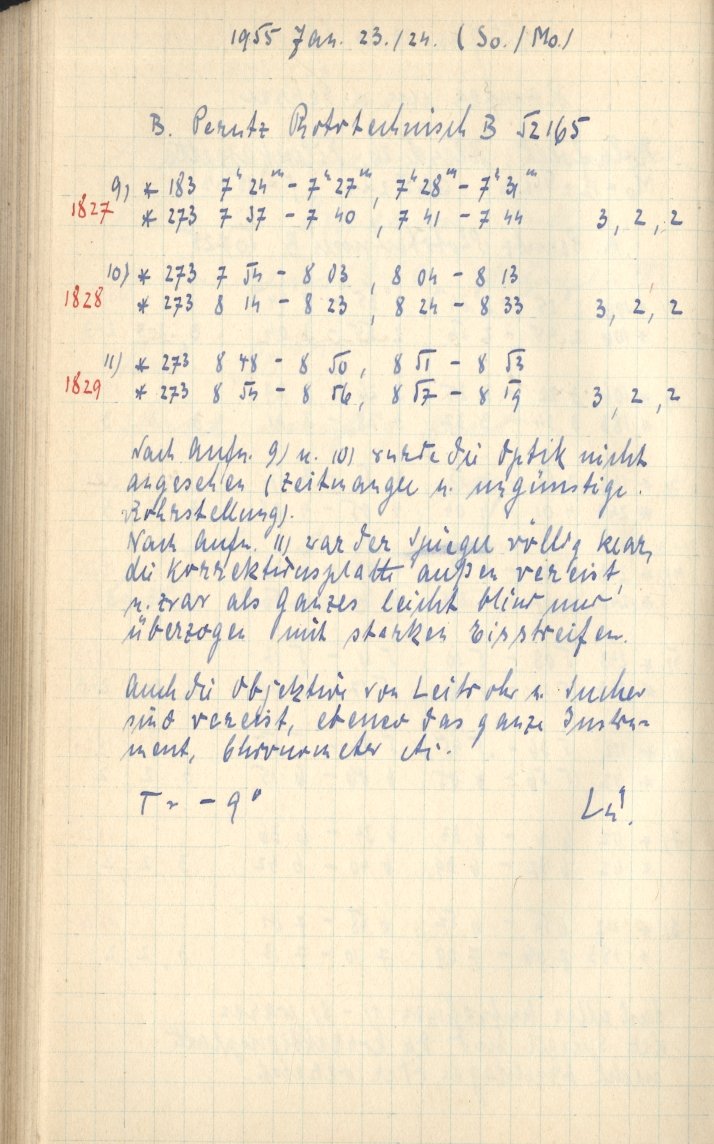 1955 Jan. 23./24. (So./Mo.)
B. Perutz Phototechnisch B 52165
9) * 183 7h 24m - 7h 27m, 7h 28m - 7h 31m
1827 * 273 7 37 - 7 40, 7 41 - 7 44 3, 2, 2
10) * 273 7 54 - 8 03, 8 04 - 8 13
1828 * 273 8 14 - 8 23, 8 24 - 8 33 3, 2, 2
11) * 273 8 48 - 8 50, 8 51 - 8 53
1829 * 273 8 54 - 8 56, 8 57 - 8 59 3, 2, 2
Nach Aufn. 9) u. 10) wurde die Optik nicht
angesehen (Zeitmangel u. ungünstige
Rohrstellung).
Nach Aufn. 11) war der Spiegel völlig klar,
die Korrektionsplatte außen vereist,
u. zwar als Ganzes leicht blind und
überzogen mit starken Eisstreifen.
Auch die Objektive von Leitrohr u. Sucher
sind vereist, ebenso das ganze Instru-
ment, Chronometer etc.
T = - 9°